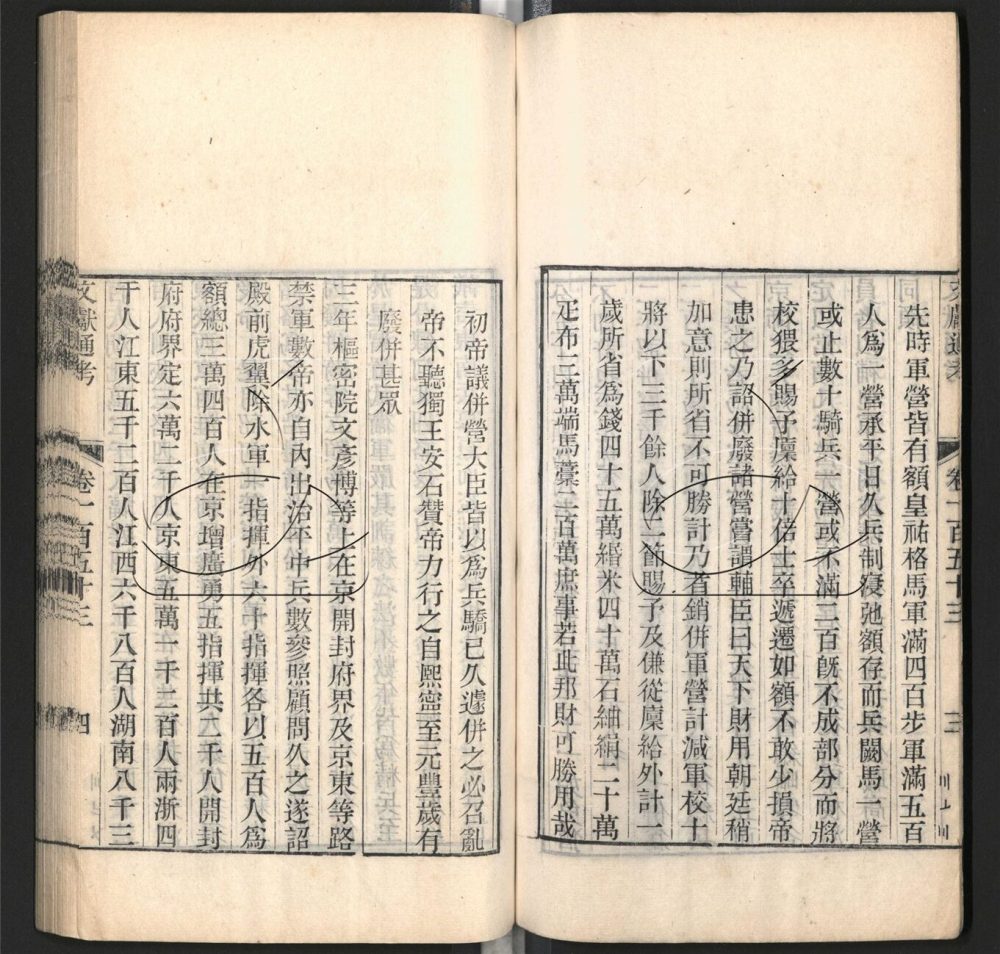 先時軍營皆有額皇祐格馬軍滿四百步軍滿五百
人爲一營承平日久兵制寖弛額存而兵闕馬一營
或止數十騎兵一營或不滿二百旣不成部分而將
校猥多賜予廩給十倍士卒遞遷如額不敢少損帝
患之乃詔併廢諸營嘗謂輔臣曰天下財用朝廷稍
加意則所省不可勝計乃者銷併軍營計減軍校十
將以下三千餘人除二節賜予及傔從廩給外計一
歲所省爲錢四十五萬緡米四十萬石紬絹二十萬
疋布三萬端馬藁二百萬庶事若此邦財可勝用哉
卷一百五十三
三
初帝議併營大臣皆以爲兵驕已久遽併之必召亂
帝不聽獨王安石贊帝力行之自熙寧至元豐歲有
廢併甚眾
三年樞密院文彥博等上在京開封府界及京東等路
禁軍數帝亦自內出治平中兵數參照顧問久之遂詔
殿前虎翼除水軍一指揮外六十指揮各以五百人爲
額總三萬四百人在京增廣勇五指揮共二千人開封
府府界定六萬二千人京東五萬一千二百人兩浙四
千人江東五千二百人江西六千八百人湖南八千三
文獻通考
卷一百五十三
四